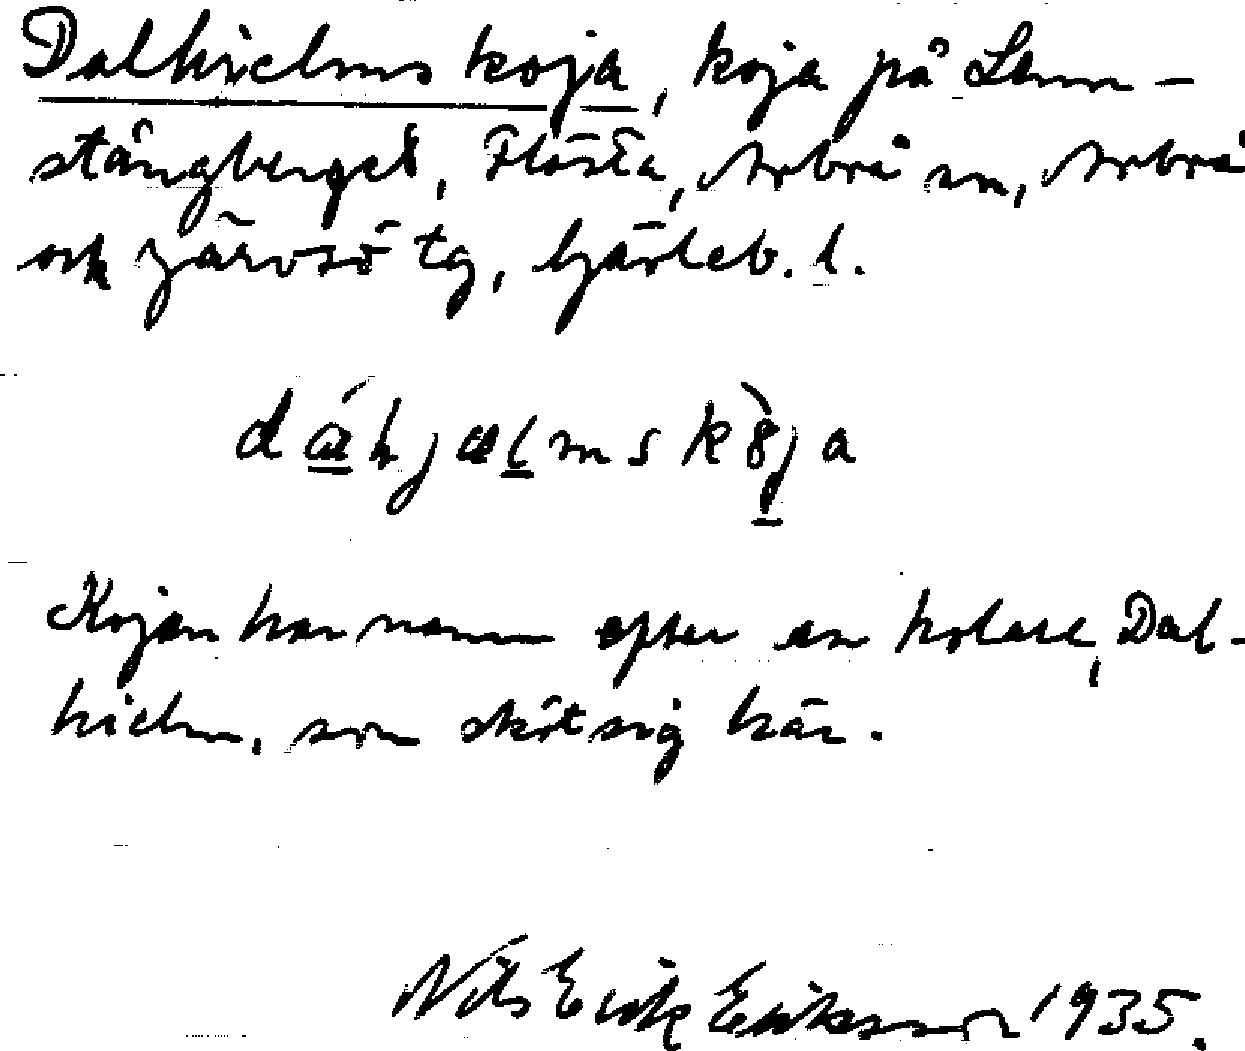 Dalhielms koja, koja på Lam-
stångberget, Flästa, Arbrå sn, Arbrå
och Järvsö tg, Gävleb. l.
dáhjælmskòja
Kojan har namn efter en kolare, Dal-
hielm, som skött sig här.
Nils Erik Eriksson 1935.